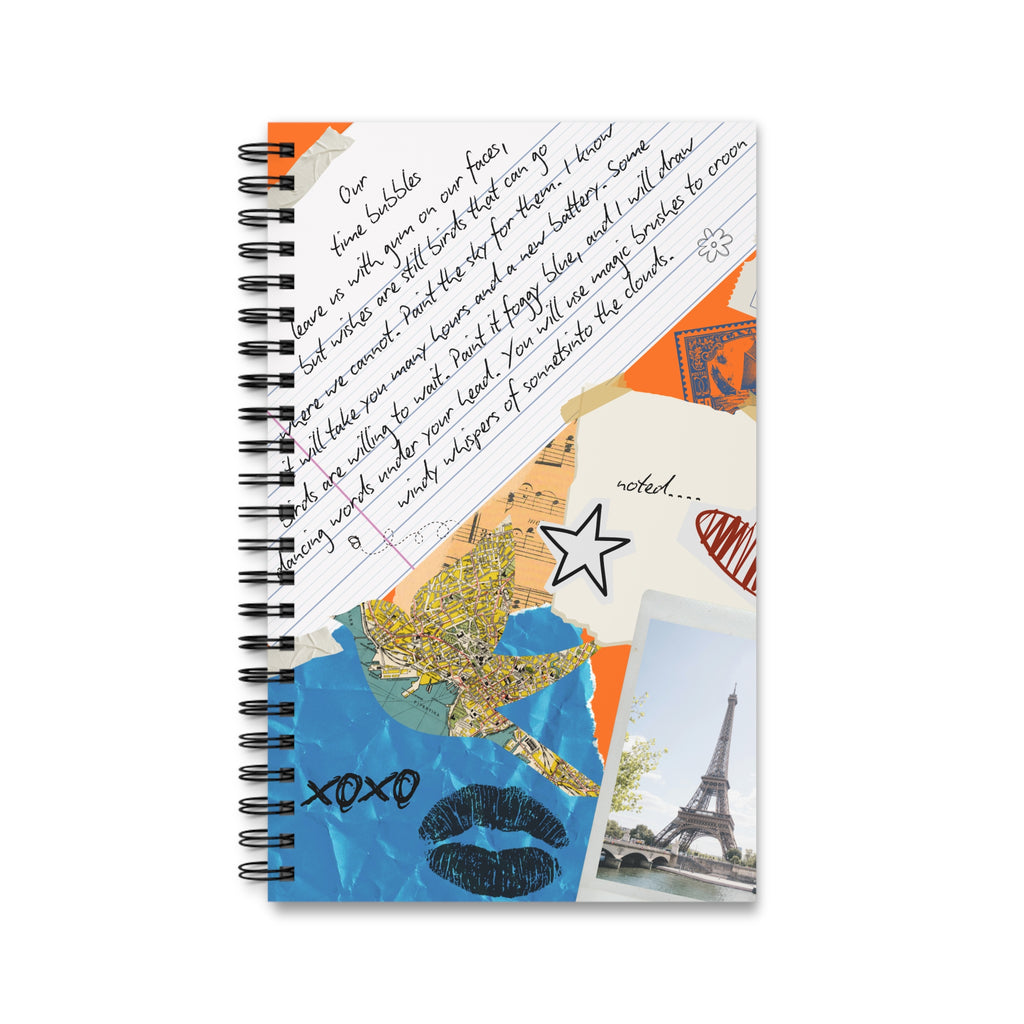 Our
time bubbles
leave us with gum on our faces,
but wishes are still birds that can go
where we cannot. Paint the sky for them. I know
it will take you many hours and a new battery. Some
birds are willing to wait. Paint it foggy blue, and I will draw
dancing words under your head. You will use magic brushes to croon
windy whispers of sonnetsinto the clouds.
noted....
xoxo